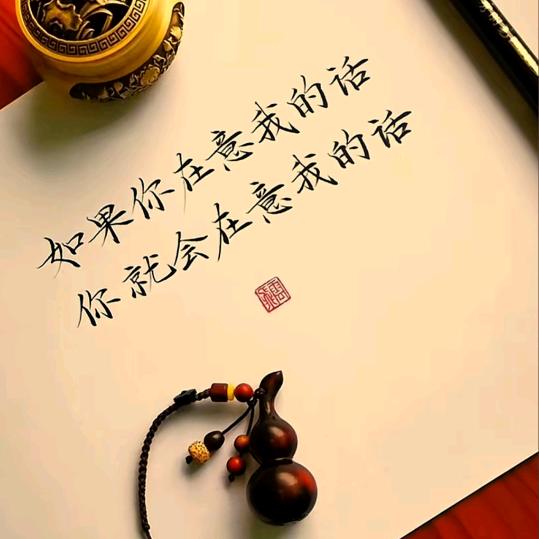 如果你在意我的话
你就会在意我的话